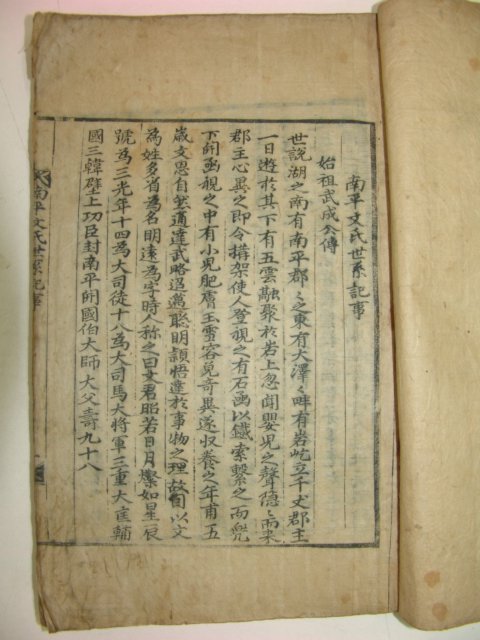 南平文氏世系記事
始祖武成公傳
世說湖之南有南平郡郡之東有大澤澤畔有岩屹立千丈郡主
一日遊於其下有五雲融聚於岩上忽聞嬰児之聲隱隱而来
郡主心異之即令構架使人登視之有石函以鐵索繫之而㒷
下開函視之中有小児肥膚玉雪容皃奇異遂収養之年甫五
歲文思自然通達武略迢邁聡明頴悟達於事物之理故因以文
為姓多省為名明遠為字時人称之曰文君昭若日月燦如星辰
號為三光年十四為大司徒十八為大司馬大將軍三重大匡輔
國三韓壁上功臣封南平開國伯大師大父壽九十八
南平文氏世系記事